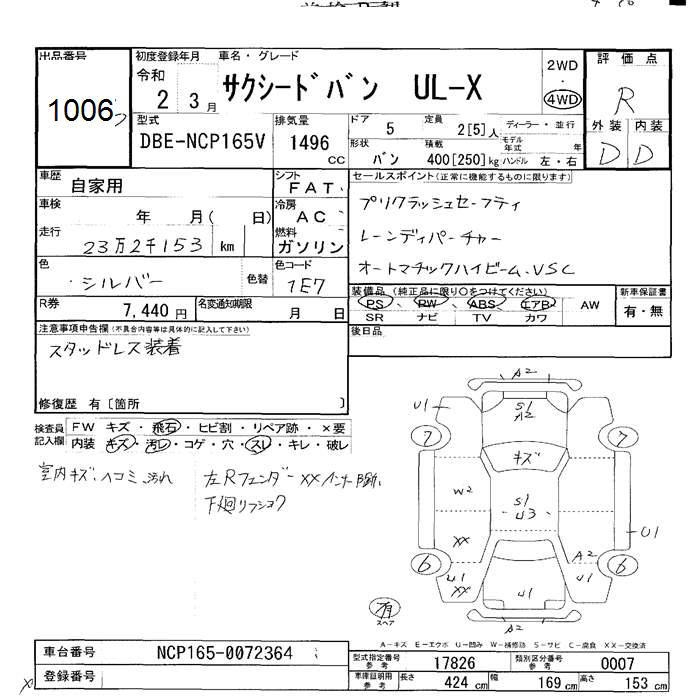 出品番号
1006
初度登録年月
令和
2 3月
車名・グレード
サクシードバン UL-X
2WD
・
4WD
評価点
R
外装 内装
D D
型式
DBE-NCP165V
排気量
1496
CC
ドア
5
定員
2[5]人
形状
バン
積載
400[250]kg
ディーラー・並行
モデル年式 年
ハンドル 左・右
車歴
自家用
シフト
FAT
車検
年 月( 日)
冷房
AC
走行
23万2千153 km
燃料
ガソリン
色
シルバー
色替
色コード
1E7
R券
7,440円
名変通知期限
月 日
セールスポイント(正常に機能するものに限ります)
プリクラッシュセーフティ
レーンディパーチャー
オートマチックハイビーム、VSC
装備品(純正品に限り○をつけてください)
PS、PW、ABS、エアB、AW
SR ナビ TV カワ
新車保証書
有・無
後日品
注意事項申告欄(不具合内容等は具体的に記入して下さい)
スタッドレス装着
修復歴 有〔箇所 〕
検査員記入欄
FW キズ・飛石・ヒビ割・リペア跡・×要
内装 キズ・汚レ・コゲ・穴・スレ・キレ・破レ
室内キズ、ヘコミ、汚れ
左Rフェンダー××インナー
下廻リ
A2
U1
S1
A2
7 7
キズ
W2
S1
U3
U1
XX
A2
6 6
U1
XX
U1
A2
有
スペア
A-キズ E-エクボ U-凹み W-補修跡 S-サビ C-腐食 XX-交換済
車台番号
NCP165-0072364
登録番号
型式指定番号
参考
17826
類別区分番号
参考
0007
車庫証明用
参考
長さ
424cm
幅
169cm
高さ
153cm